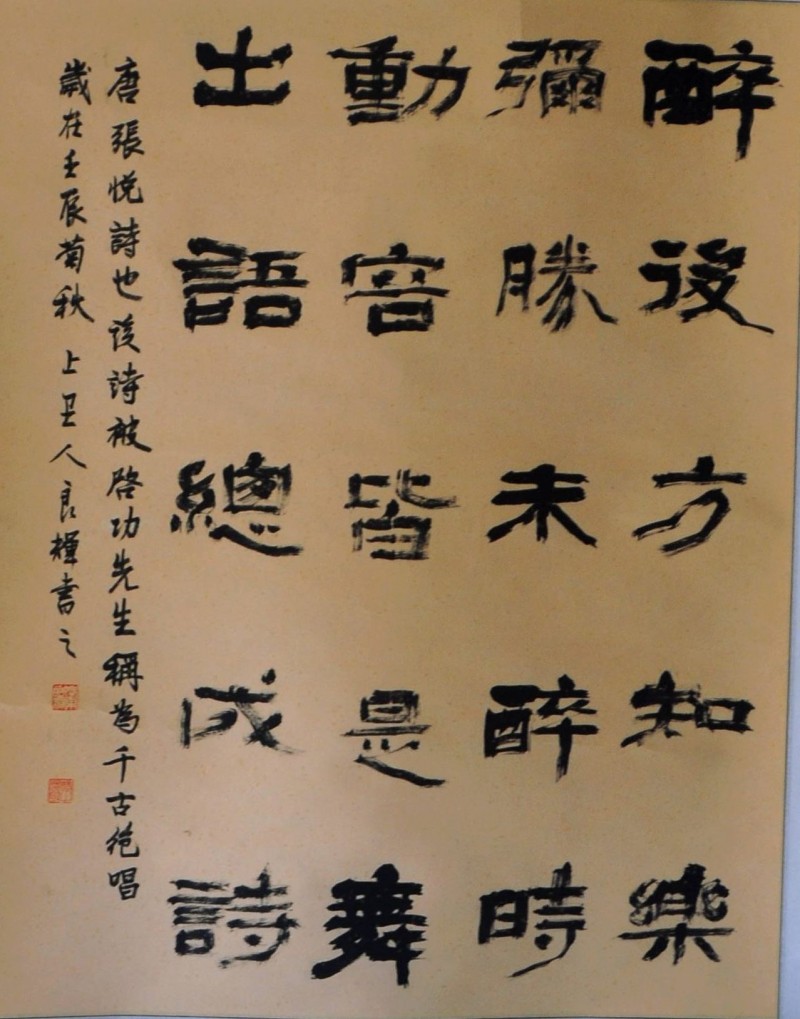 醉後方知樂
彌勝未醉時
動容皆是舞
出語總成詩
唐張悅詩也後詩被啓功先生稱為千古絶唱
歲在壬辰菊秋上丑人良楎書之